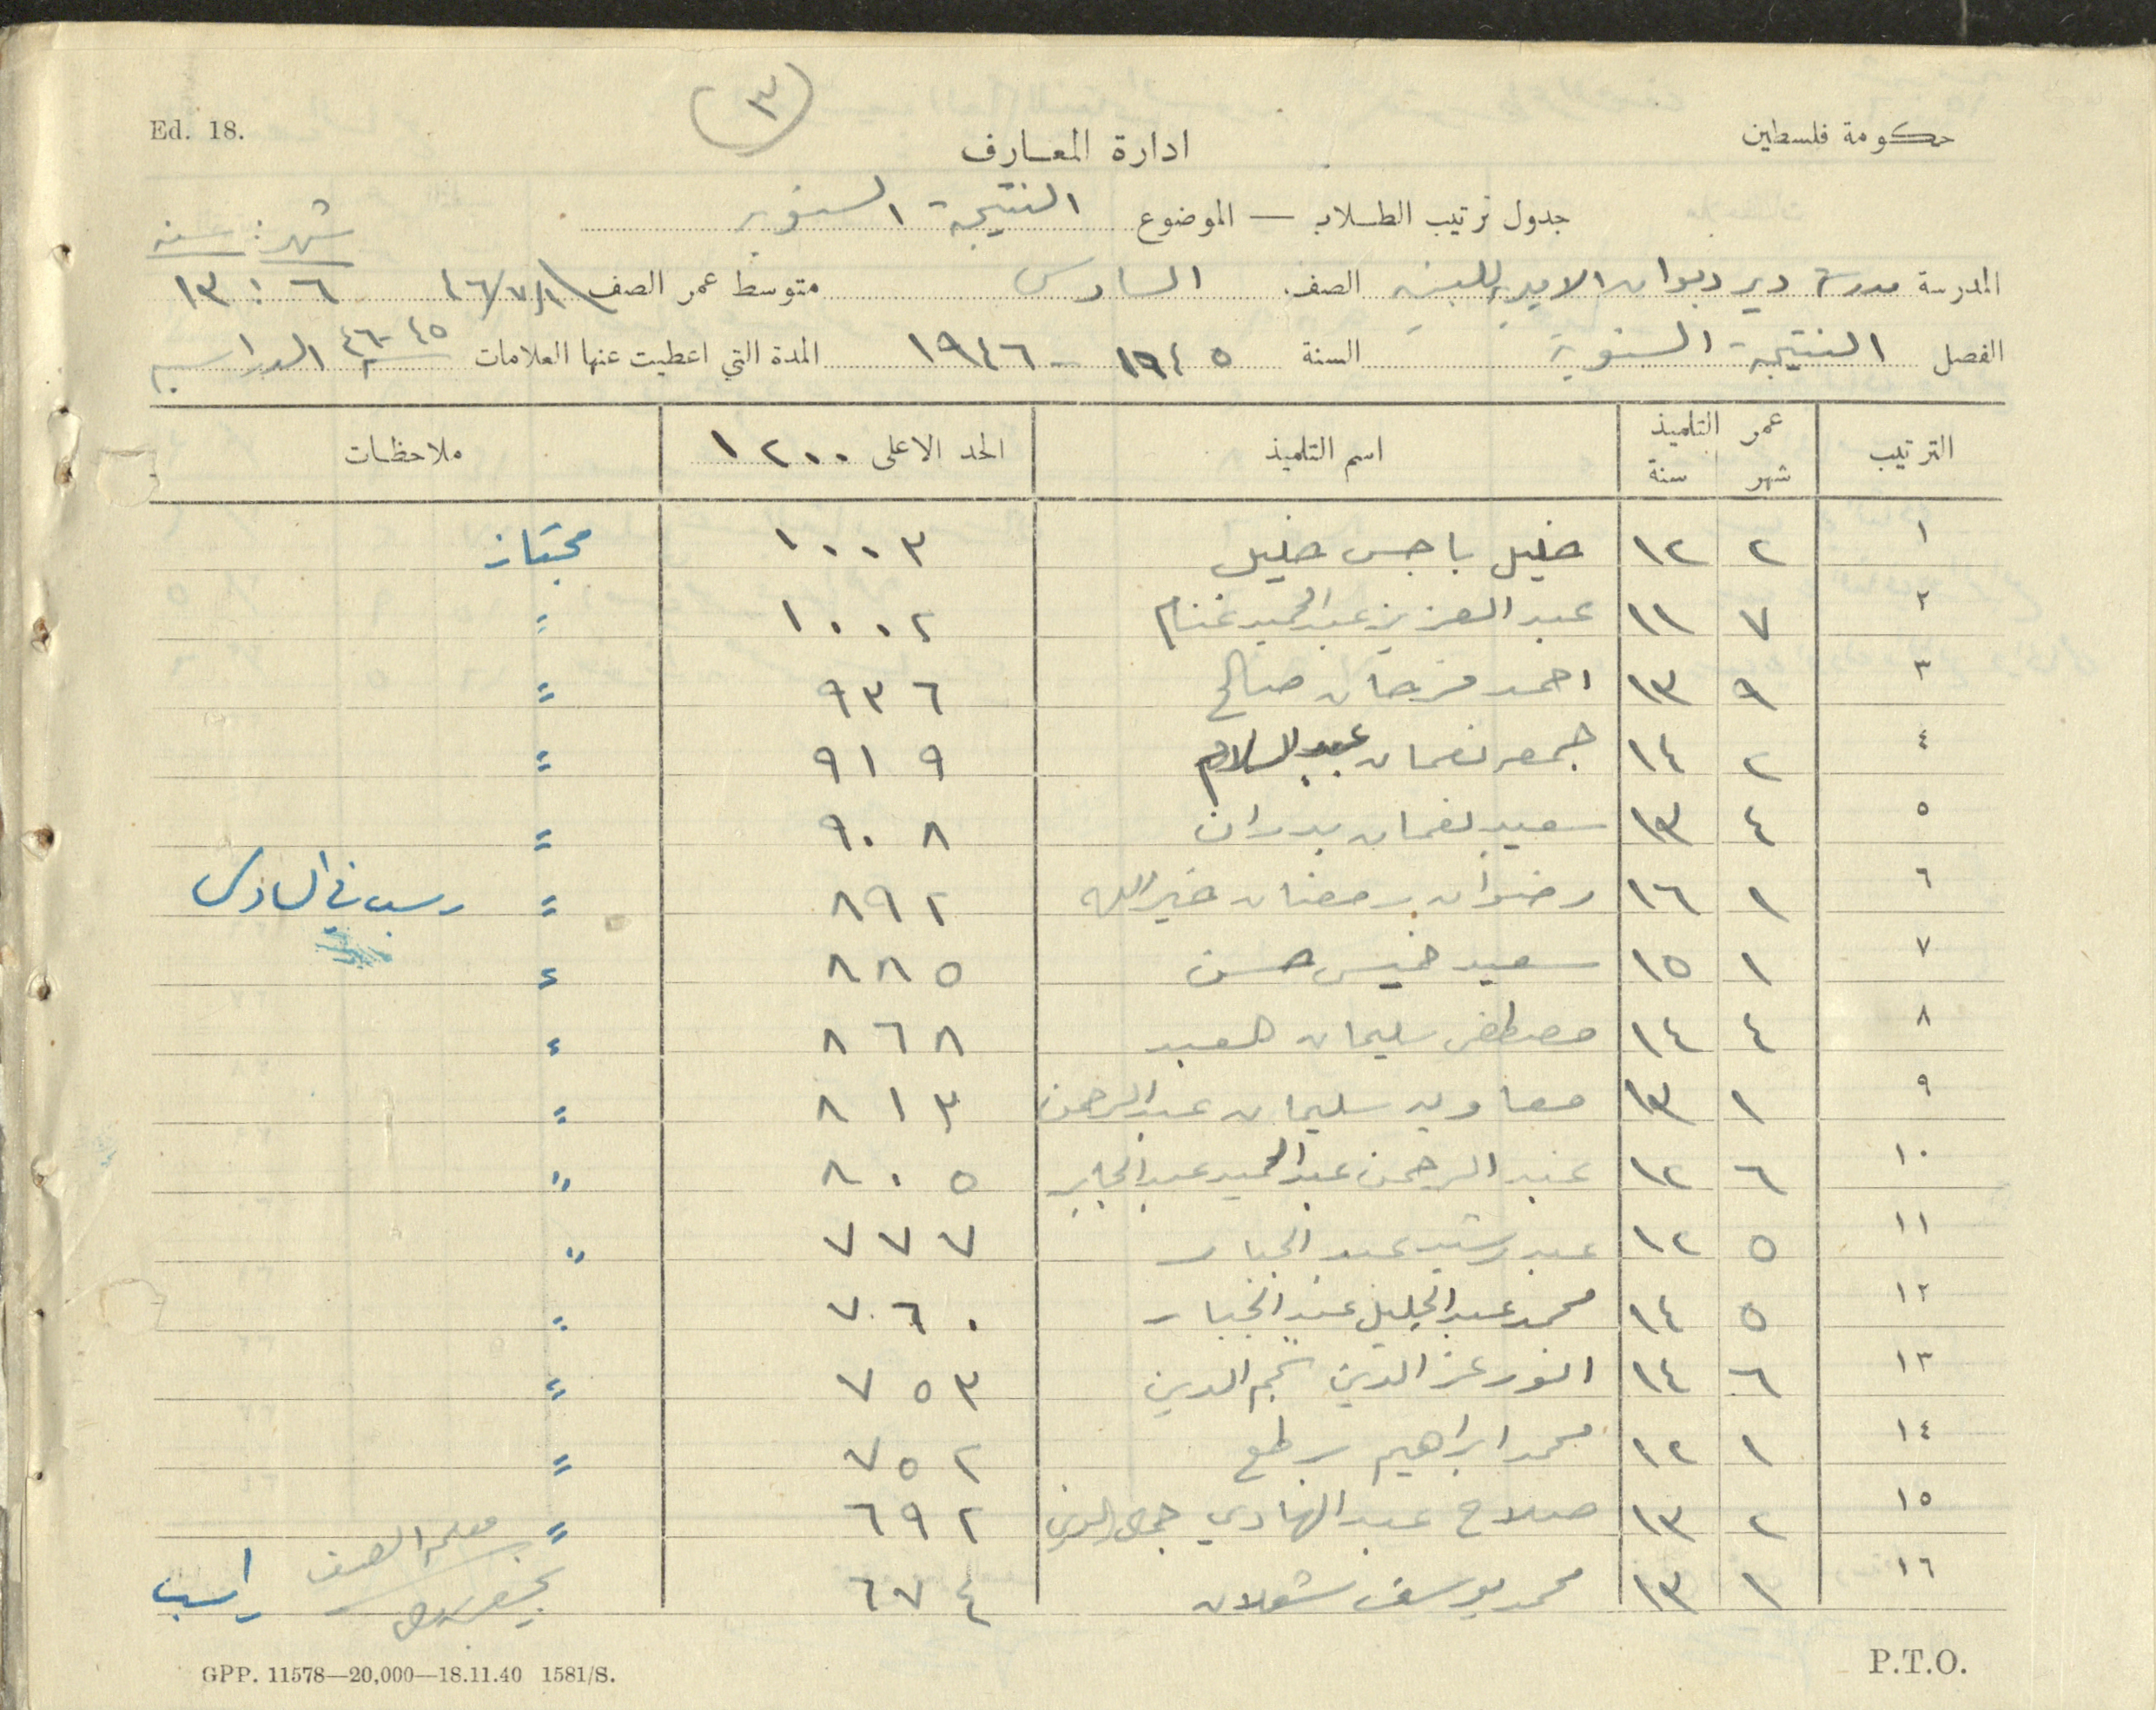 Ed. 18.
(٣)
حكومة فلسطين
ادارة المعارف
جدول ترتيب الطلاب — الموضوع النتيجة السنوية
شهر : سنة
المدرسة مدرسة دير ديوان الاميرية للبنين الصف السادس متوسط عمر الصف ١/٧/٤٦ ٦ : ١٣
الفصل النتيجة السنوية السنة ١٩٤٥ - ١٩٤٦ المدة التي اعطيت عنها العلامات ٤٥-٤٦ الدراسية
الترتيب عمر التلميذ شهر سنة اسم التلميذ الحد الاعلى ١٢٠٠ ملاحظات
١ ٢ ١٢ خليل باجس خليل ١٠٠٣ مجتاز
٢ ٧ ١١ عبد العزيز عبد الحميد غنام ١٠٠٢ "
٣ ٩ ١٣ احمد فرحان صالح ٩٣٦ "
٤ ٢ ١٤ جمعه نعمان عبد السلام ٩١٩ "
٥ ٤ ١٣ سعيد نعمان بدران ٩٠٨ "
٦ ١ ١٦ رضوان رمضان خير الله ٨٩٢ " رسب في السادس
٧ ١ ١٥ سعيد خميس حسن ٨٨٥ "
٨ ٤ ١٤ مصطفى سليمان العبد ٨٦٨ "
٩ ١ ١٣ معاويه سليمان عبد الرحمن ٨١٣ "
١٠ ٦ ١٢ عبد الرحمن عبد الحميد عبد الجابر ٨٠٥ "
١١ ٥ ١٢ عبد رشيد عبد الجبار ٧٧٧ "
١٢ ٥ ١٤ محمد عبد الجليل عبد الجبار ٧٦٠ "
١٣ ٦ ١٤ انور عز الدين نجم الدين ٧٥٣ "
١٤ ١ ١٢ محمد ابراهيم ٧٥٢ "
١٥ ٢ ١٣ صلاح عبد الهادي جمال الدين ٦٩٢ "
معلم الصف
١٦ ١ ١٣ محمد يوسف شعلان ٦٧٤ راسب
GPP. 11578—20,000—18.11.40 1581/S.
P.T.O.